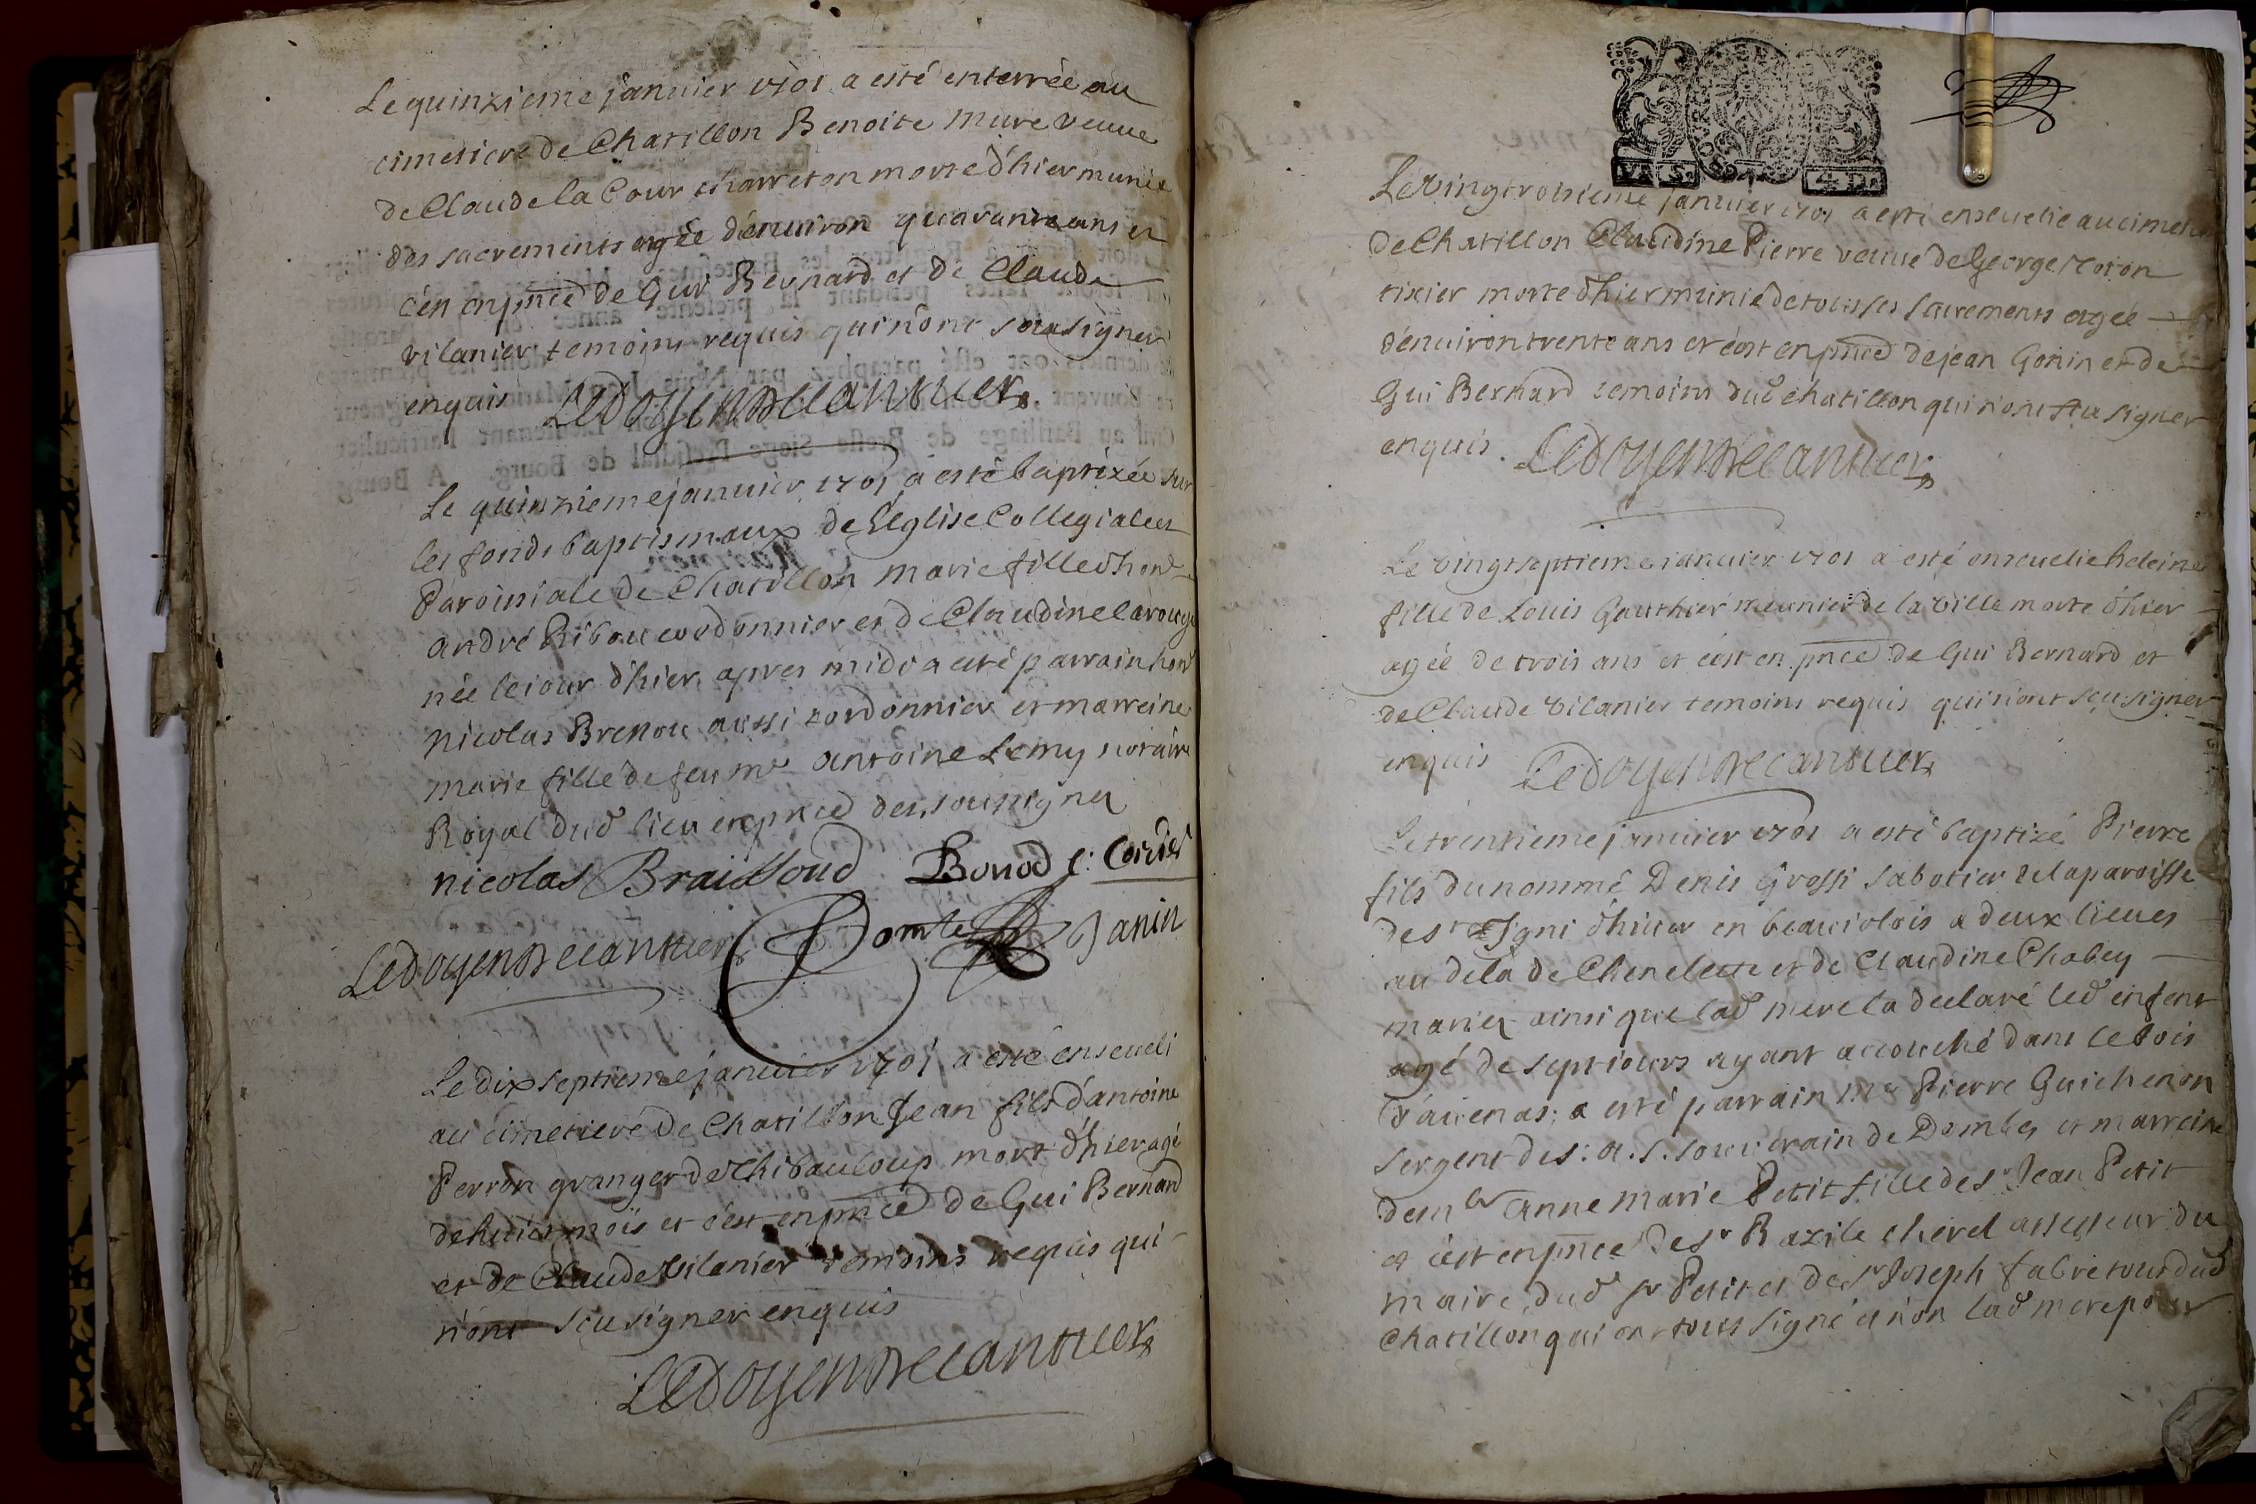 Le quinzieme januier 1701 a esté enterrée au
cimetiere de Chatillon Benoite Mure veuue
de Claude la Cour charreton morte d'hier munie
des sacrements agée d'enuiron quarante ans et
c'en en pnce de Gui Bernard et de Claude
vilanier temoins requis qui n'ont sceu signer
enquis Ledoyen
Le quinzieme januier 1701 a esté baptizée sur
les fonds baptismaux de L'Eglise Collegiale et
Paroissiale de Chatillon Marie fille d'hond
André Ribou cordonnier et de Claudine Larouge
née le iour d'hier apres midi a esté parrain hond
Nicolas Brenou aussi cordonnier et marreine
Marie fille de feu me Antoine Lemy notaire
Royal dud lieu en pnce des soussignez
nicolas Braissoud Bonod
Ledoyen Janin
Le dix septieme januier 1701 a esté enseueli
au cimetiere de Chatillon Jean fils d'antoine
Perron granger de Thibauloup mort d'hier agé
de huict mois et c'est en pnce de Gui Bernard
et de Claude Vilanier temoins requis qui
n'ont sceu signer enquis
Ledoyen
VN S. 4 D.
Le vingtroisieme januier 1701 a esté enseuelie au cimetie
de Chatillon Claudine Pierre veuue de George Moron
tixier morte d'hier munie de tous ses sacrements agée
d'enuiron trente ans et c'est en pnce de jean Gonin et de
Gui Bernard temoins dud chatillon qui n'ont sceu signer
enquis. Ledoyen
Le vingtseptieme januier 1701 a esté enseuelie heleine
fille de Louis Gauthier meunier de la ville morte d'hier
agée de trois ans et c'est en pnce de Gui Bernard et
de Claude vilanier temoins requis qui n'ont sceu signer
enquis Ledoyen
Le trentieme januier 1701 a esté baptizé Pierre
fils du nommé Denis Grossi sabotier de la paroisse
de st Igni d'hiuer en beauiolois a deux lieues
au dela de Chenelette et de Claudine Chabey
mariez ainsi que lad mere la declaré led enfent
agé de sept iours ayant accouché dans le bois
d'auenas: a esté parrain Mr Pierre Guichenon
sergent de s: a. s. souuerain de Dombes et marreine
demlle Anne Marie Petit fille de sr Jean Petit
et c'est en pnce de sr Bazile cherel assesseur du
maire, dud sr Petit et de sr Joseph fabre tous dud
Chatillon qui ont tous signé et non lad mere pour